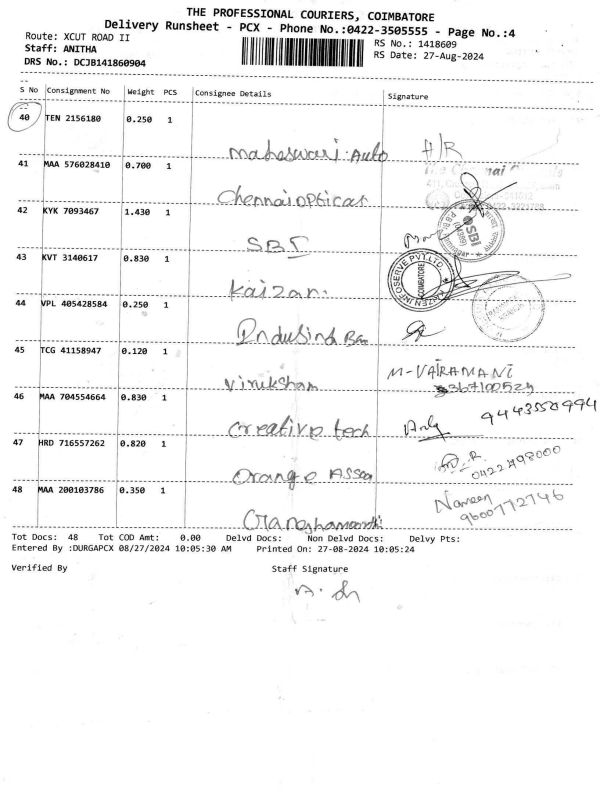 THE PROFESSIONAL COURIERS, COIMBATORE
Delivery Runsheet - PCX - Phone No.:0422-3505555 - Page No.:4
Route: XCUT ROAD II
RS No.: 1418609
Staff: ANITHA
RS Date: 27-Aug-2024
DRS No.: DCJB141860904
S No Consignment No Weight PCS Consignee Details Signature
40 TEN 2156180 0.250 1
Maheswari Auto H/R
41 MAA 576028410 0.700 1
Chennai opticas
42 KYK 7093467 1.430 1
SBI
SBI
43 KVT 3140617 0.830 1
Kaizan.
KAIZEN INFOSERVE PVT LTD
COIMBATORE
44 VPL 405428584 0.250 1
Indusind Ban
45 TCG 41158947 0.120 1
Viruksham M-VAIRAMANI
46 MAA 704554664 0.830 1
Creative tech
47 HRD 716557262 0.820 1
Orange Assoa
48 MAA 200103786 0.350 1
Naveen
9600772746
Tot Docs: 48 Tot COD Amt: 0.00 Delvd Docs: Non Delvd Docs: Delvy Pts:
Entered By :DURGAPCX 08/27/2024 10:05:30 AM Printed On: 27-08-2024 10:05:24
Verified By Staff Signature